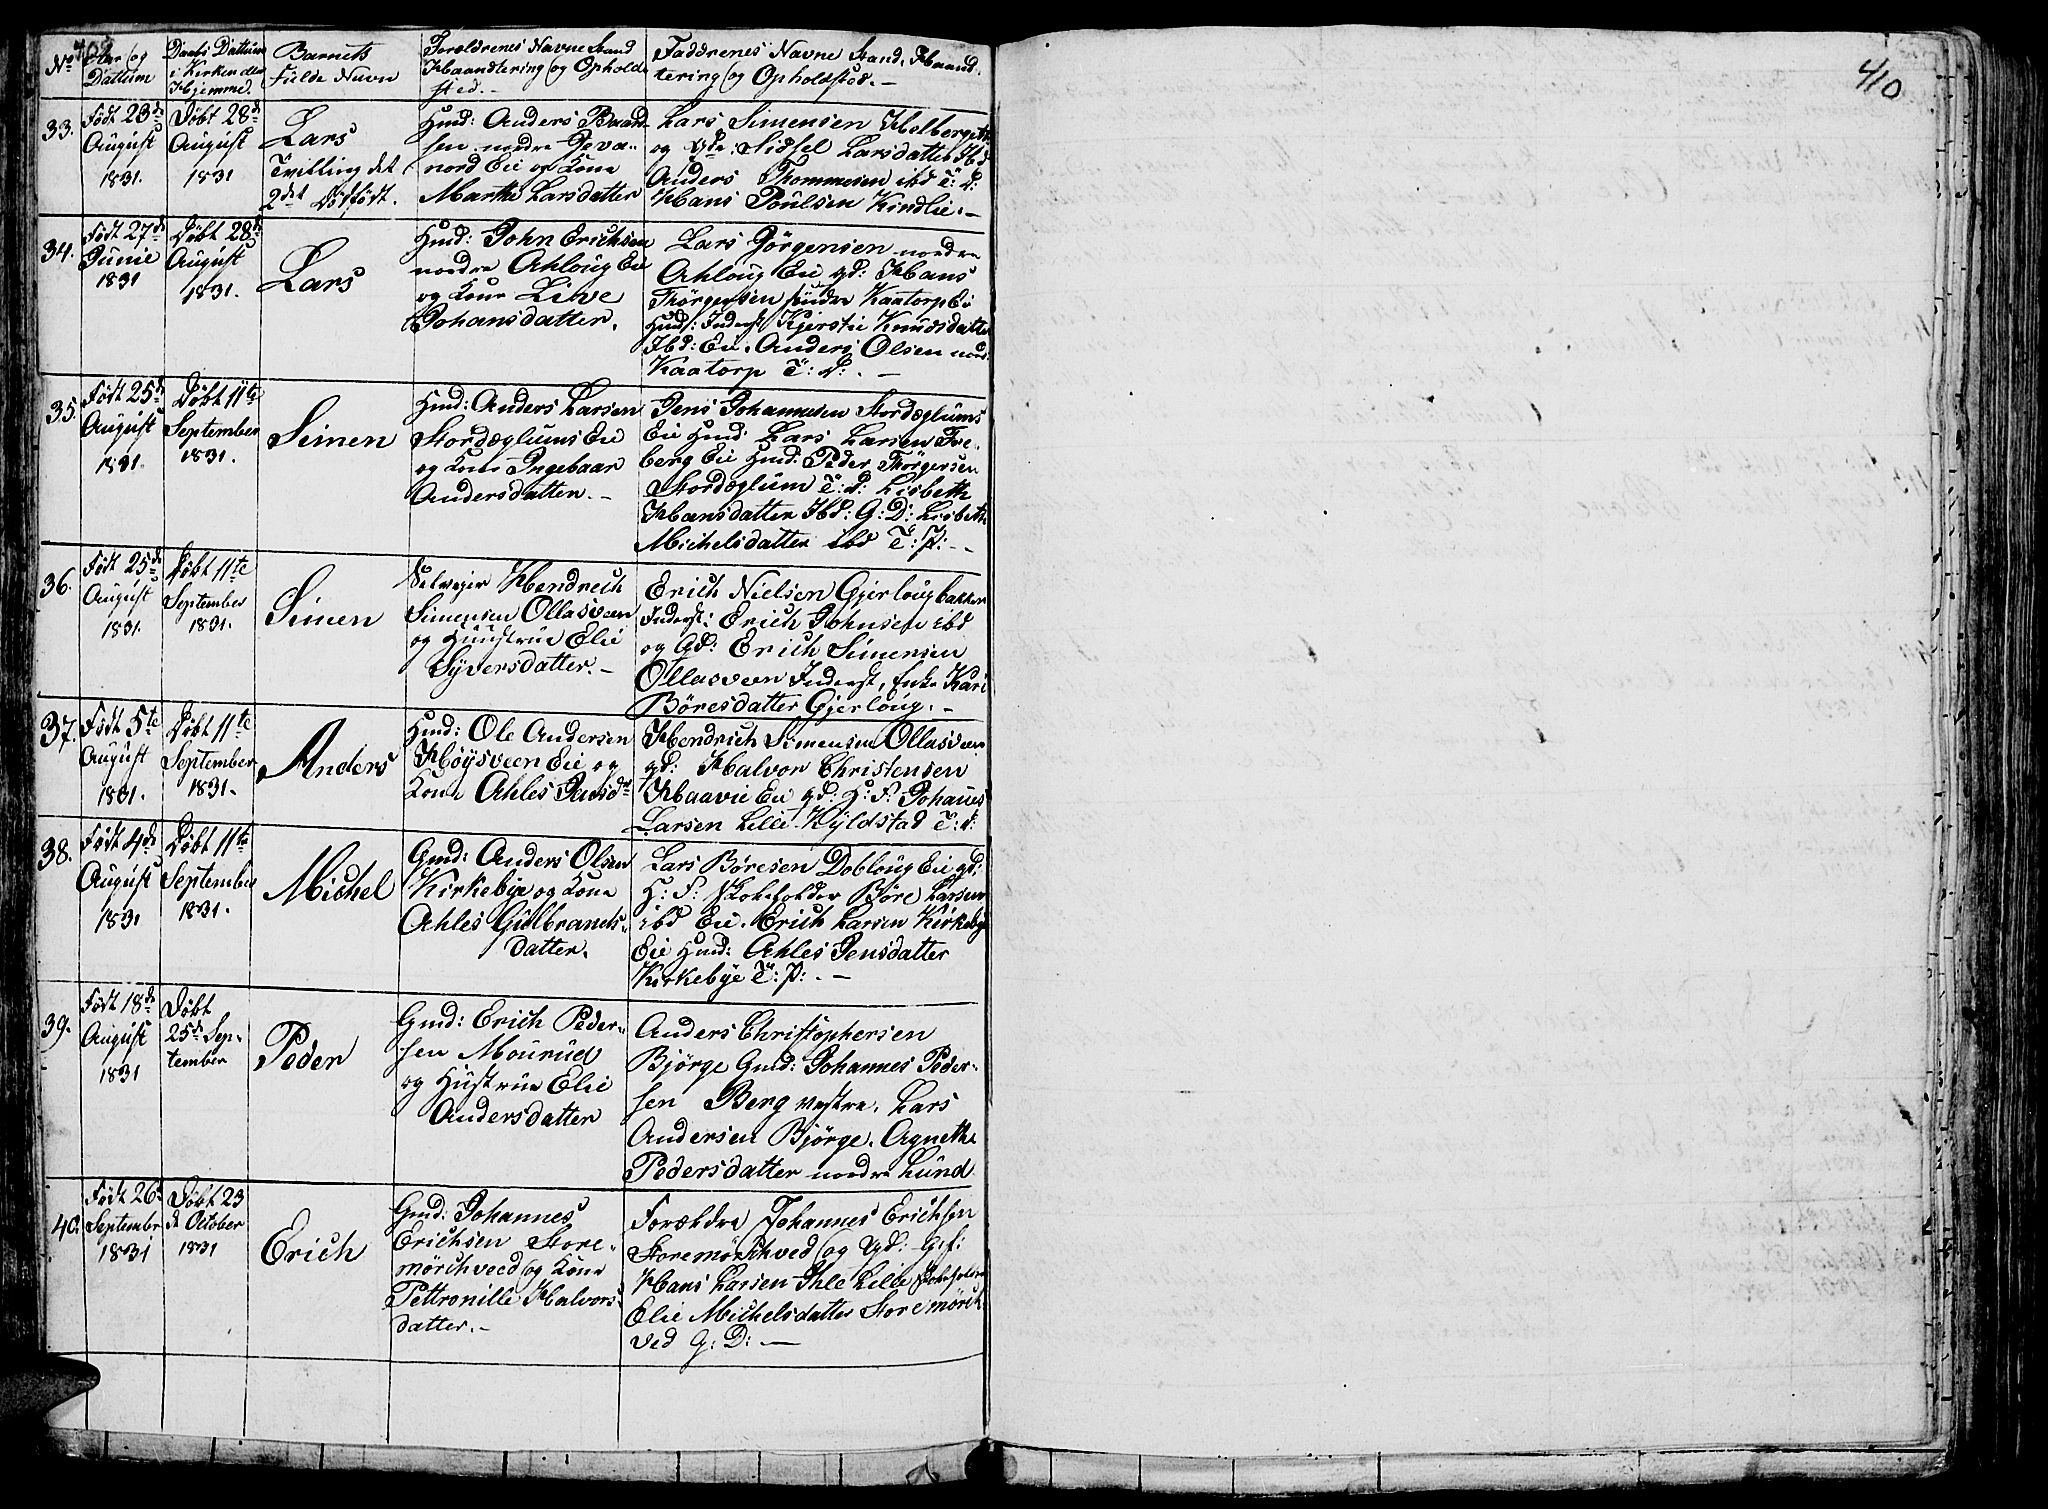 410
No
Aar og
Dattum
Daabs Dattum
i Kirken eller
Hjemme.
Barnets
Fulde Navn
Forældrenes Navne Stand
Haandtering og Opholds
sted.-
Faddrenes Navne Stand, Haand
tering og Opholdsted.-
33.
Födt 23de
August
1831.
Döbt 28de
August
1831
Lars
Tvilling det
2det Dödfödt.
Hmd: Anders
sen nordre
nord Eie og Kone
Marthe Larsdatter
Lars Simensen
og Sidsel Larsdatter Ibd
Anders Thommesen ibd T: D:
Hans Poulsen Kindlie.-
34.
Födt 27de
Junie
1831
Döbt 28de
August
1831.
Lars
Hmd: John Erichsen
nordre Ahloug Eie
og Kone Live
Johansdatter.
Lars Jörgensen nordre
Ahloug Eie gd: Hans
Thörgersen söndre Kaatorp Ei
Hmd: Inderst Kjerstie Knudsdatter
Ibd: Eie. Anders Olsen nord
Kaatorp T: D:. -
35.
Födt 25de
August
1831.
Döbt 11te
September
1831.
Simen
Hmd: Anders Larsen
Stordæglums Eie
og Kone Ingebaar
Andersdatter.-
Jens Johannesen Stordæglums
Eie Hmd: Lars Larsen Fre-
berg Eie Hmd: Peder Thörgersen
Stordæglum T: D: Lisbeth
Hansdatter Ibd: G: D: Lisbeth
Michelsdatter ibd T: P: -
36.
Födt 25de
August
1831.
Döbt 11te
September
1831.
Simen
Selveier Hendrich
Simensen Ollasveen
og Huustrue Elie
Syversdatter.-
Erich Nielsen Gjerlougbakken
Inderst: Erich Johnsen ibd
og Gd: Erich Simensen
Ollasveen Inderst, Enke Kari
Böresdatter Gjerloug.-
37.
Födt 5te
August
1831.
Döbt 11te
September
1831.
Anders
Hmd: Ole Andersen
Höysveen Eie og
Kone Ahles Jensdr
Hendrich Simensen Ollasveen
gd: Halvor Christensen
Haavie Eie gd: H: S: Johannes
Larsen Lille Kyldstad T: D:
38.
Födt 4de
August
1831
Döbt 11te
September
1831.
Michel
Gmd: Anders Olsen
Kirkebye og Kone
Ahles Gulbrands-
datter.
Lars Böresen Dobloug Eie gd:
H: S: Skoleholder Böre Larsen
ibd Eie. Erich Larsen Kirkebye
Eie Hmd: Ahles Jensdatter
Kirkebye T: P:. -
39.
Födt 18de
August
1831
Döbt
25de Sep-
tember
Peder
Gmd: Erich Peder-
sen Mourud
og Hustrue Elie
Andersdatter
Anders Christophersen
Björge Gmd: Johannes Peder-
sen Berg vestre. Lars
Andersen Björge. Agnethe
Pedersdatter nordre Lund
40.
Födt 26
September
1831
Döbt 23
de October
1831
Erich
Gmd: Johannes
Erichsen Store-
mörchveed og Kone
Pettronille Halvors-
datter.-
Forældre Johannes Erichsen
Storemörchved og gd: G: f:
Hans Larsen Ihle Lille Skoleholder
Elie Michelsdatter Storemörch-
ved G: D: -